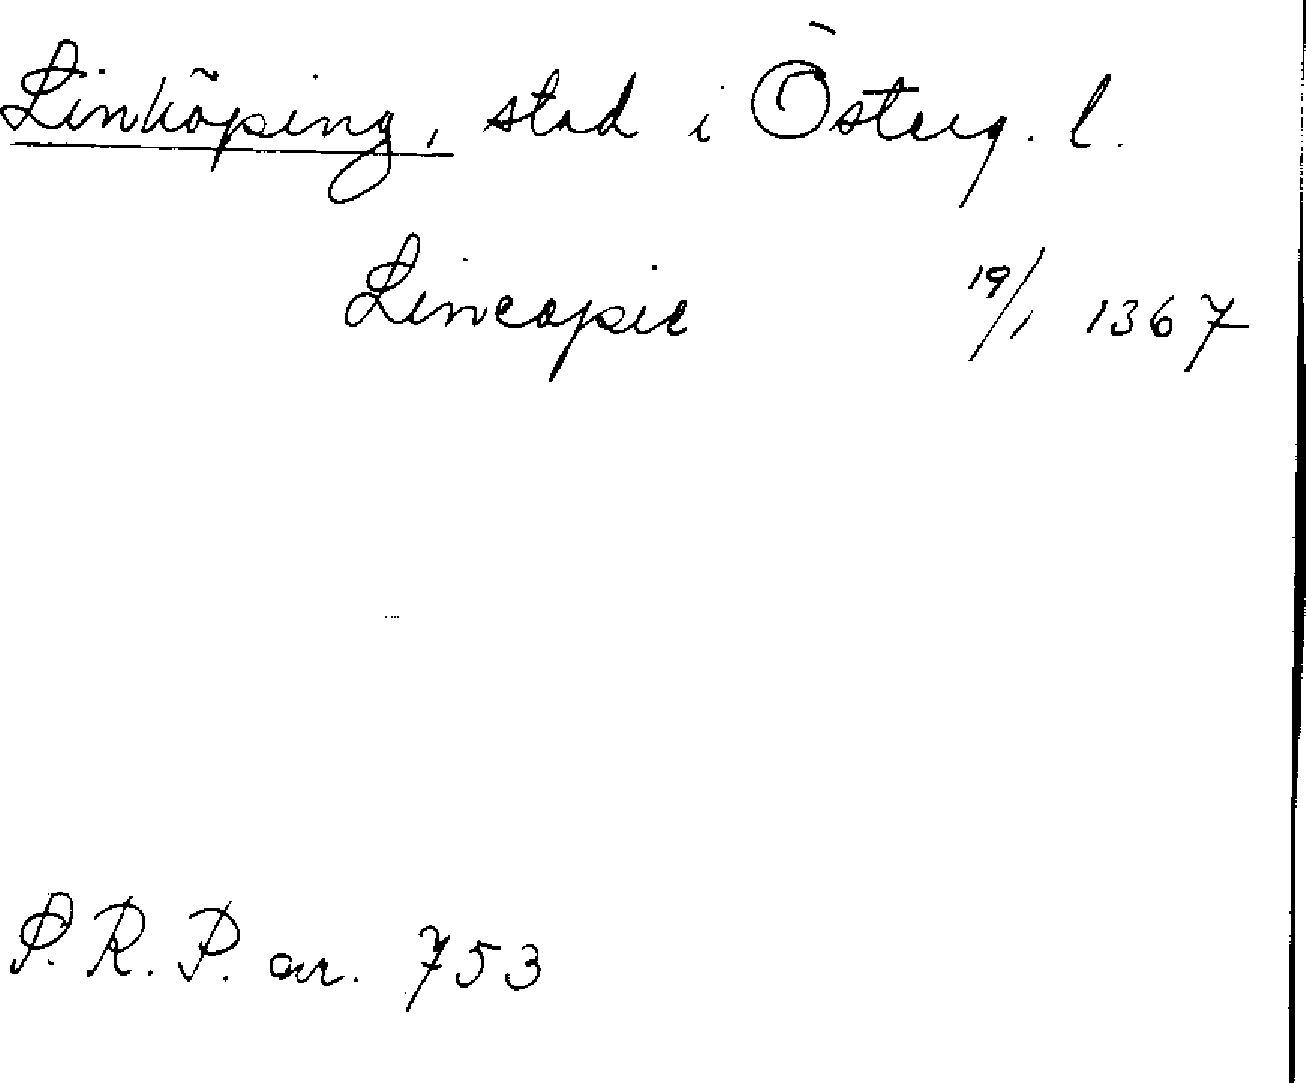 Linköping, stad i Österg. l.
Lincopie 19/1 1367
S. R. P. nr. 753